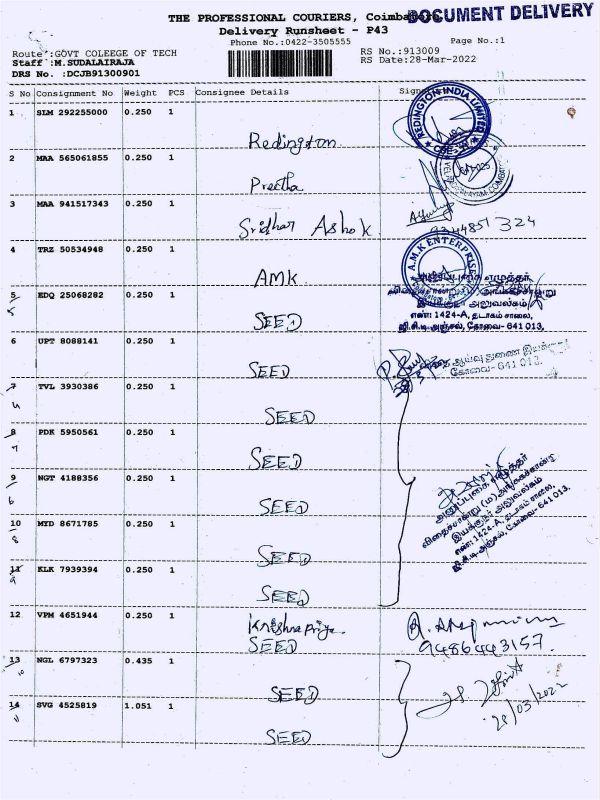 THE PROFESSIONAL COURIERS, Coimbatore
DOCUMENT DELIVERY
Delivery Runsheet - P43
Phone No.:0422-3505555
Page No.:1
Route :GOVT COLEEGE OF TECH
RS No.:913009
Staff :M.SUDALAIRAJA
RS Date:28-Mar-2022
DRS No. :DCJB91300901
S No Consignment No Weight PCS Consignee Details
1 SLM 292255000 0.250 1 Redington
REDINGTON INDIA LIMITED
2 MAA 565061855 0.250 1 Preetha
3 MAA 941517343 0.250 1 Sridhar Ashok
4 TRZ 50534948 0.250 1 AMK
A.M.K ENTERPRISES
5 EDQ 25068282 0.250 1 SEED
5
இயக்குநர் அலுவலகம்,
எண்: 1424-A, தடாகம் சாலை,
ஜி.சி.டி. அஞ்சல், கோவை- 641 013.
6 UPT 8088141 0.250 1 SEED
கோவை- 641 013.
7 TVL 3930386 0.250 1 SEED
8 PDK 5950561 0.250 1 SEED
7
9 NGT 4188356 0.250 1 SEED
6
அலுவலகம்
எண்: 1424-A, தடாகம் சாலை,
ஜி.சி.டி. அஞ்சல், கோவை- 641 013.
10 MYD 8671785 0.250 1 SEED
8
11 KLK 7939394 0.250 1 SEED
9
12 VPM 4651944 0.250 1 Krishnapriya
SEED
9486443157.
13 NGL 6797323 0.435 1 SEED
10
28/03/2022
14 SVG 4525819 1.051 1 SEED
11